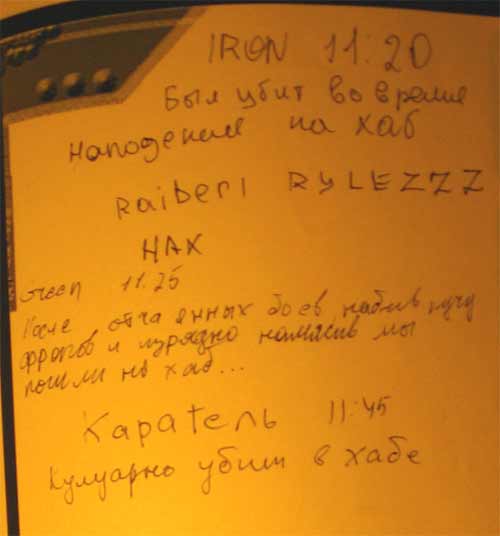 IRON 11:20
Был убит во время
Нападения на хаб
Raiberi RYLEZZZ
НАХ
Green 11.25
После отчаянных боев набив кучу
фрагов и изрядно намясив мы
пошли на хаб...
Каратель 11:45
Кулуарно убит в хабе